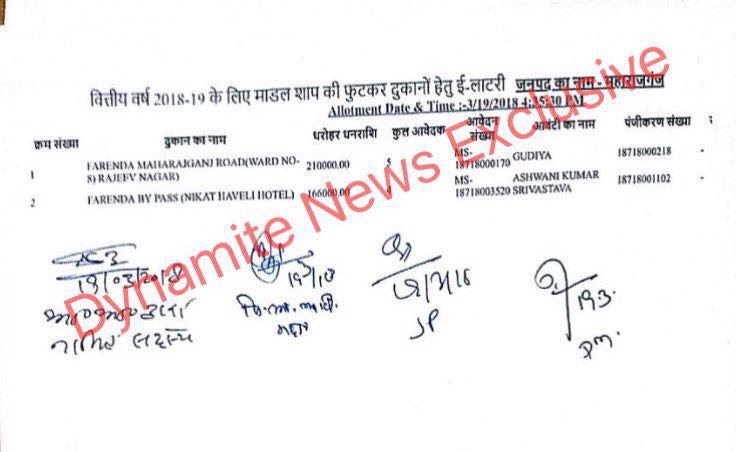 वित्तीय वर्ष 2018-19 के लिए माडल शाप की फुटकर दुकानों हेतु ई-लाटरी जनपद का नाम - महाराजगंज
Allotment Date & Time :-3/19/2018 4:35:30 PM
क्रम संख्या दुकान का नाम धरोहर धनराशि कुल आवेदक आवेदन संख्या आवंटी का नाम पंजीकरण संख्या
1 FARENDA MAHARAJGANJ ROAD(WARD NO-8) RAJEEV NAGAR) 210000.00 5 MS-18718000170 GUDIYA 18718000218
2 FARENDA BY PASS (NIKAT HAVELI HOTEL) 166000.00 4 MS-18718003520 ASHWANI KUMAR SRIVASTAVA 18718001102
Dynamite News Exclusive
19/03/2018